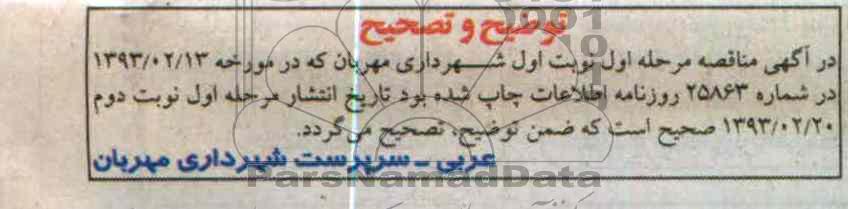 توضیح و تصحیح
در آگهی مناقصه مرحله اول نوبت اول شهرداری مهربان که در مورخه ۱۳۹۳/۰۲/۱۳
در شماره ۲۵۸۶۳ روزنامه اطلاعات چاپ شده بود تاریخ انتشار مرحله اول نوبت دوم
۱۳۹۳/۰۲/۲۰ صحیح است که ضمن توضیح، تصحیح می‌گردد.
عربی ـ سرپرست شهرداری مهربان
ParsNamadData